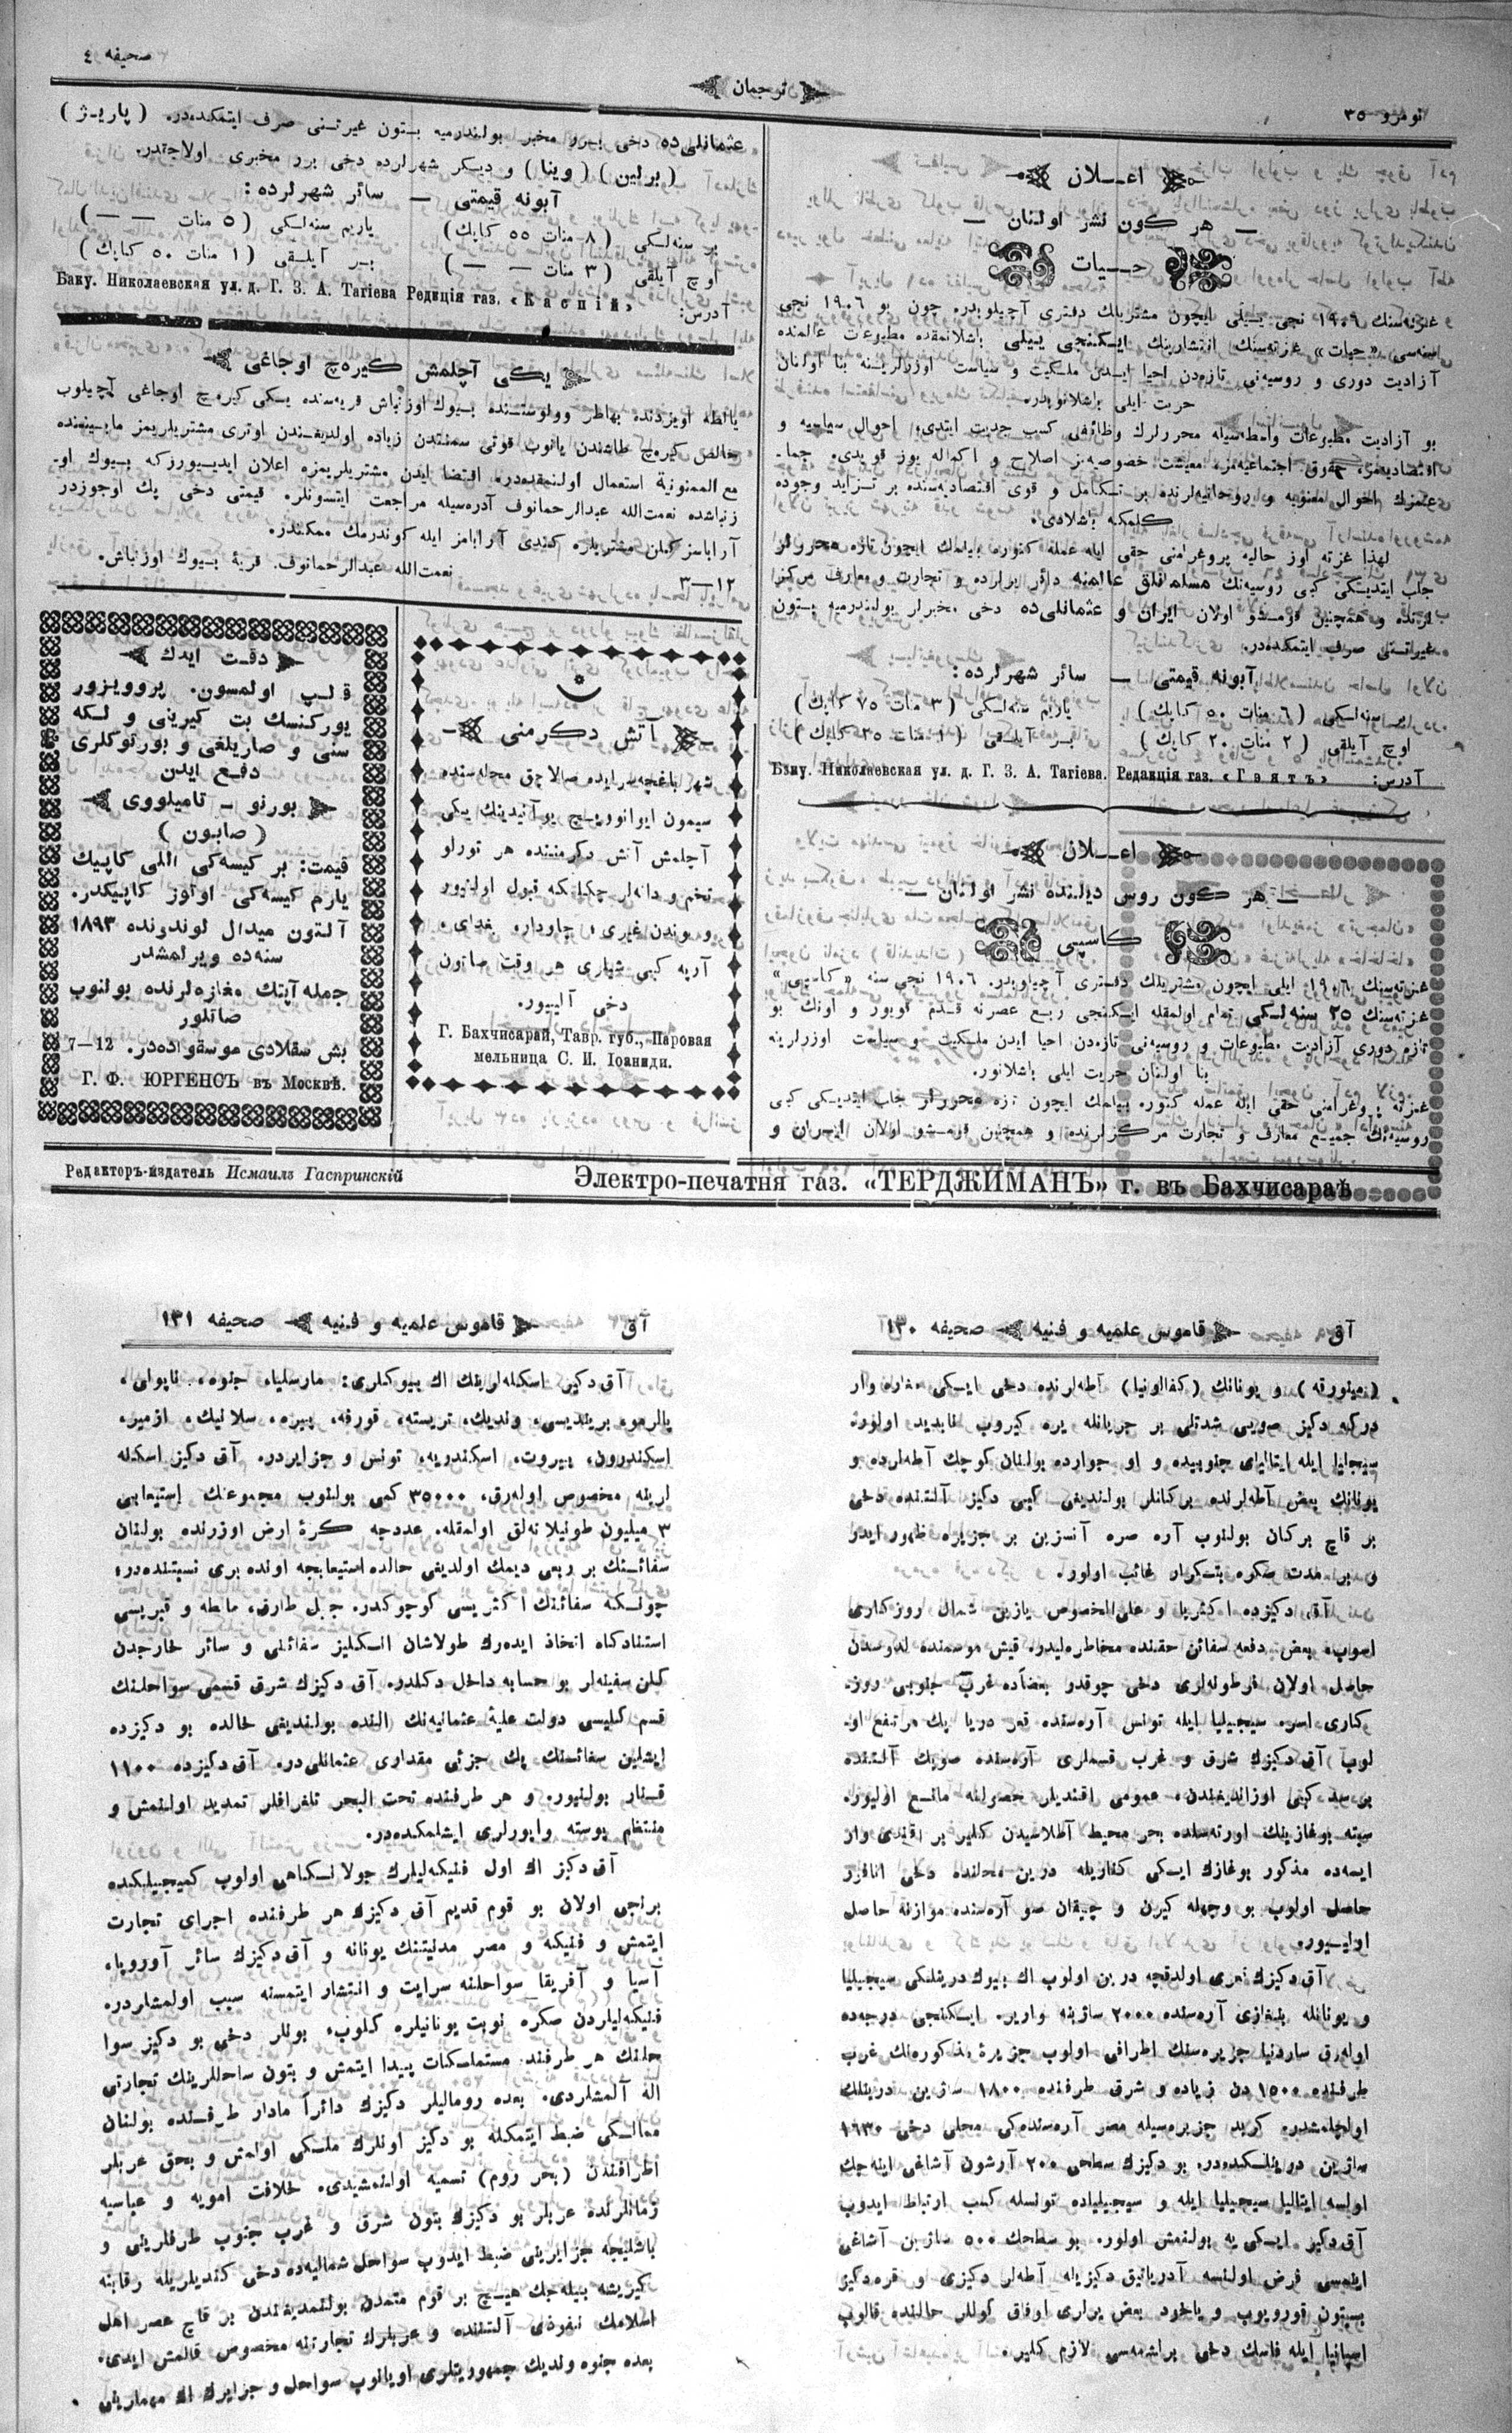 نومرو ٣٥
ترجمان
صحیفه ٤
اعـــلان
— هر كون نشر اولنان —
حـــیات
غزته‌سنك ١٩٠٦ نجی ییلی ایچون مشتریلك دفتری آچیلوبدر. چون بو ١٩٠٦ نجی
سنه‌سی «حیات» غزته‌سنك انتشارینك ایـكنجی ییلی باشلانمقده مطبوعات عالمنده
آزادیت دوری و روسیه‌نی تازه‌دن احیا ایدن ملـكیت و سیاست اوزرلرینه بنا اولنان
حریت ایلی باشلانوبدر.
بو آزادیت مطبوعات واسطه‌سیله محررلرك وظائفی كسب جدیت ایتدی، احوال سیاسیه و
اقتصادیه‌مز، حقوق اجتماعیه‌مز، معیشت خصوصیه‌مز اصلاح و اكماله یوز قویدی. جما-
عتمزك احوال معنویه و روحانیه‌لرنده بر تـكامل و قوی اقتصادیه‌سنده بر تـزاید وجوده
كلمكه باشلادی.
لهذا غزته اوز حالیه پروغرامنی حقی ایله عمله كتوره بیلمك ایچون تازه محررلر
جلب ایتدیـكی كبی روسیه‌نك مسلمانلق عالمنه دائر یرلرده و تجارت و معارف مركز
لرنده و همچنین قومشو اولان ایران و عثمانلی‌ده دخی مخبرلر بولندرمیه بـتون
غیرتـنی صرف ایتمكده‌در.
آبونه قیمتی — سائر شهرلرده:
بر سنه‌لـكی ( ٦ منات ٥٠ كاپك ) یاریم سنه‌لـكی ( ٣ منات ٧٥ كاپك )
اوچ آیلقی ( ٢ منات ٢٠ كاپك ) بـر آیلـقی ( ١ منات ٢٥ كاپك )
آدرس: Баку. Николаевская ул. д. Г. З. А. Тагіева. Редакція газ. «Гэятъ»
اعـــلان
— هر كون روس دیلنده نشر اولنان —
كاسپی
غزته‌سنك ١٩٠٦ ایلی ایچون مشتریلك دفتری آچیلوبدر. ١٩٠٦ نجی سنه «كاسپی»
غزته‌سنك ٢٥ سنه‌لـكی تمام اولمقله ایـكنجی ربـع عصرنه قـدم قویور و اونك بو
تازه دوری آزادیت مطبوعات و روسیه‌نی تازه‌دن احیا ایدن ملـكیت و سیاست اوزرلرینه
بنا اولنان حریت ایلی باشلانور.
غزته پروغرامنی حقی ایله عمله كتوره بیلمك ایچون تازه محررلر جلب ایتدیـكی كبی
روسیه‌نك جمیـع معارف و تجارت مركـزلرنده و همچنین قومـشو اولان ایـران و
عثمانلی‌ده دخی بـرر مخبر بولندرمیه بـتون غیرتـنی صرف ایتمكده‌در. ( پاریـژ )
( برلین ) ( وینا ) و دیـكر شهرلرده دخی برر مخبری اولاجقدر.
آبونه قیمتی — سائر شهرلرده:
بر سنه‌لـكی ( ٨ منات ٥٥ كاپك ) یاریم سنه‌لـكی ( ٥ منات — — )
اوچ آیلقی ( ٣ منات — — ) بـر آیلـقی ( ١ منات ٥٠ كاپك )
آدرس: Баку. Николаевская ул. д. Г. З. А. Тагіева Редкція газ. «Каспій»
یـكی آچلمش كیره‌چ اوجاغی
یالطه اویزدنده بهاطر وولوستـنده بـیوك اوزنباش قریه‌سنده یـكی كیره‌چ اوجاغی آچیلوب
خالص كیره‌چ طاشندن یانوب قوتی سمنتدن زیاده اولدیغـندن اوتری مشتریلریمز مابـینـنده
مع الممنونیة استعمال اولنمقده‌در. اقتضا ایدن مشتریلریمزه اعلان ایدیـیورزكه بـیوك او-
زنباشده نعمت‌الله عبدالرحمانوف آدره‌سیله مراجعت ایتسونلر. قیمتی دخی پك اوجوزدر
آراباسز كلن مشتریلره كندی آرابامز ایله كوندرمك ممكندر.
نعمت‌الله عبدالرحمانوف. قریهٔ بـیوك اوزنباش.
١٢—٣
آتش دكرمنی
شهر باغچه‌سرایده صالاچق محله‌سنده
سیمون ایوانوویـچ یوآنیدینك یـكی
آچلمش آتش دكرمننده هر تورلو
تخم و دانه‌لر چكلـكه قبول اولنیور
و بوندن غیری، چاودار، بغدای،
آرپه كبی شیلری هر وقت صاتون
دخی آلییور.
Г. Бахчисарай, Тавр. губ., Паровая
мельница С. И. Іоаниди.
دقـت ایدك
قـلـپ اولمسون. پروویزور
یوركنسك بت كیرینی و لـكه
سنی و صاریلغی و بورتوكلری
دفـع ایدن
بورنو — تامیلووی
( صابون )
قیمت: بر كیسه‌كی اللی كاپیك
یارم كیسه‌كی اوتوز كاپیكدر.
آلتون میدال لوندونده ١٨٩٣
سنه‌ده ویرلمشدر
جمله آپتك مغازه‌لرنده بولنوب
صاتلور
بش سقلادی موسقواده‌در. 12—7
Г. Ф. ЮРГЕНСЪ въ Москвѣ.
Редакторъ-издатель Исмаилъ Гаспринскій
Электро-печатня газ. «ТЕРДЖИМАНЪ» г. въ Бахчисараѣ
آق قاموس علمیه و فنیه صحیفه ١٣٠
(مینورقه) و یونانك (كفالونیا) آطه‌لرنده دخی ایـكی مغاره وار
دركه دكیز صویی شدتلی بر جریانله یره كیروب نابدید اولور.
سیجیلیا ایله ایتالیای جنوبیده و او جوارده بولنان كوچك آطه‌لرده و
یونانك بعض آطه‌لرنده بركانلر بولندیغی كبی دكیز آلتنده دخی
بر قاچ بركان بولنوب آره صره آنسزین بر جزیره ظهور ایدر
و بر مدت صكره بتـكرار غائب اولور.
آق دكیزده اكثریا و علی‌الخصوص یازین شمال روزكاری
اسوب، بعض دفعه سفائن حقنده مخاطره‌لیدر. قیش موسمنده لدوسدن
حاصل اولان فرطونه‌لری دخی چوقدر بعضاً‌ده غرب جنوبی روز-
كاری اسر. سیجیلیا ایله تونس آره‌سنده قعر دریا پك مرتـفع او-
لوب آق دكیزك شرق و غرب قسملری آره‌سنده صویك آلـتنده
بر سد كبی اوزاندیغندن، عمومی اقندیلر حصولنه مانـع اولیور.
سبته بوغازینك اورته‌سنده بحر محیط آطلاسیدن كلیر بر اقندی وار
ایسه‌ده مذكور بوغازك ایـكی كناریله درین محلنده دخی انافور
حاصل اولوب بو وجهله كیرن و چیقان صو آره‌سنده موازنه حاصل
اولیـیور.
آق دكیزك قعری اولدقچه درین اولوب اك بیوك درینلكی سیجیلیا
و یونانله بنغازی آره‌سنده ٢٠٠٠ ساژینه واریر. ایـكنجی درجه‌ده
اوله‌رق ساردنیا جزیره‌سنك اطرافی اولوب جزیرهٔ مذكوره‌نك غرب
طرفنده ١٥٠٠ دن زیاده و شرق طرفنده ١٨٠٠ ساژین درینلك
اولچلمشدر. كرید جزیره‌سیله مصر آره‌سنده‌كی محلی دخی ١٦٣٠
ساژین درینلـكده‌در. بو دكیزك سطحی ٢٠٠ آرشون آشاغی اینه‌جك
اولسه ایتالیا سیجیلیا ایله و سیجیلیاده تونسله كسب ارتباط ایدوب
آق دكیز ایـكی یه بولنمش اولور. بو سطحك ٥٠٠ ساژین آشاغی
اینمسی فرض اولنسه آدریاتیق دكیزیله آطه‌لر دكیزی و قره‌دكیز
بسبتون قورویوب و یاخود بعض یرلری اوفاق كوللر حالنده قالوب
اسپانیا ایله فاسك دخی براشمه‌سی لازم كلیر.
آق قاموس علمیه و فنیه صحیفه ١٣١
آق دكیز اسكله‌لرینك اك بیوكلری: مارسلیا، جنوه، ناپولی،
پالرمو، برینذیسی، ونـدیك، تریسته، قورفه، پیره، سلانیك، ازمیر،
اسكندرون، بیروت، اسكندریه، تونس و جزایردر. آق دكیز اسكله
لرینه مخصوص اوله‌رق، ٣٥٠٠٠ كمی بولنوب مجموعنك استیعابی
٣ میلیون طونیلاته‌لق اولمقله، عددجه كرهٔ ارض اوزرنده بولنان
سفائـنك بر ربعی دیمك اولدیغی حالده استیعابجه اونده بری نسبتنده‌در،
چونـكه سفائنك اكثریسی كوچوكدر. جبل طارق، مالطه و قبریسی
استنادكاه اتخاذ ایده‌رك طولاشان انـكلیز سفائنی و سائر خارجدن
كلن سفینه‌لر بو حسابه داخل دكلدر. آق دكیزك شرق قسمی سواحلنك
قسم كلیسی دولت علیهٔ عثمانیه‌نك النده بولندیغی حالده بو دكیزده
ایشلین سفائنك پك جزئی مقداری عثمانلی‌در. آق دكیزده ١١٠٠
فـنار بولنیور. و هر طرفنده تحت البحر تلغرافلر تمدید اولنمش و
منتظم پوسته واپورلری ایشلمكده‌در.
آق دكیز اك اول فنیكه‌لیلرك جولانـكاهی اولوب كمیجیلكده
برنجی اولان بو قوم قدیم آق دكیزك هر طرفنده اجرای تجارت
ایتمش و فنیكه و مصر مدنیتنك یونانه و آق دكیزك سائر آوروپا،
آسیا و آفریقا سواحلنه سرایت و انتشار ایتمسنه سبب اولمشلردر.
فنیكه‌لیلردن صكره نوبت یونانیلره كلوب، بونلر دخی بو دكیز سوا
حلنك هر طرفنده مستملـكات پیدا ایتمش و بتون ساحللرینك تجارتی
اله آلمشلردی. بعده رومالیلر دكیزك دائراً مادار طرفـنده بولنان
ممالـكی ضبط ایتمكله بو دكیز اونلرك ملـكی اولمش و بحق عربلر
طرافندن (بحر روم) تسمیه اولنمشیدی. خلافت امویه و عباسیه
زمانلرنده عربلر بو دكیزك بتون شرق و غرب جنوب طرفلرینی و
باشلیجه جزایرینی ضبط ایدوب سواحل شمالیه‌ده دخی كندیلریله رقابته
كیریشه بیله‌جك هیـچ بر قوم متمدن بولنمدیغندن بر قاچ عصر اهل
اسلامك نفوذی آلتنده و عربلرك تجارتنه مخصوص قالمش ایدی.
بعده جنوه ونـدیك جمهوریتلری اویانوب سواحل و جزایرك اك مهملرینی